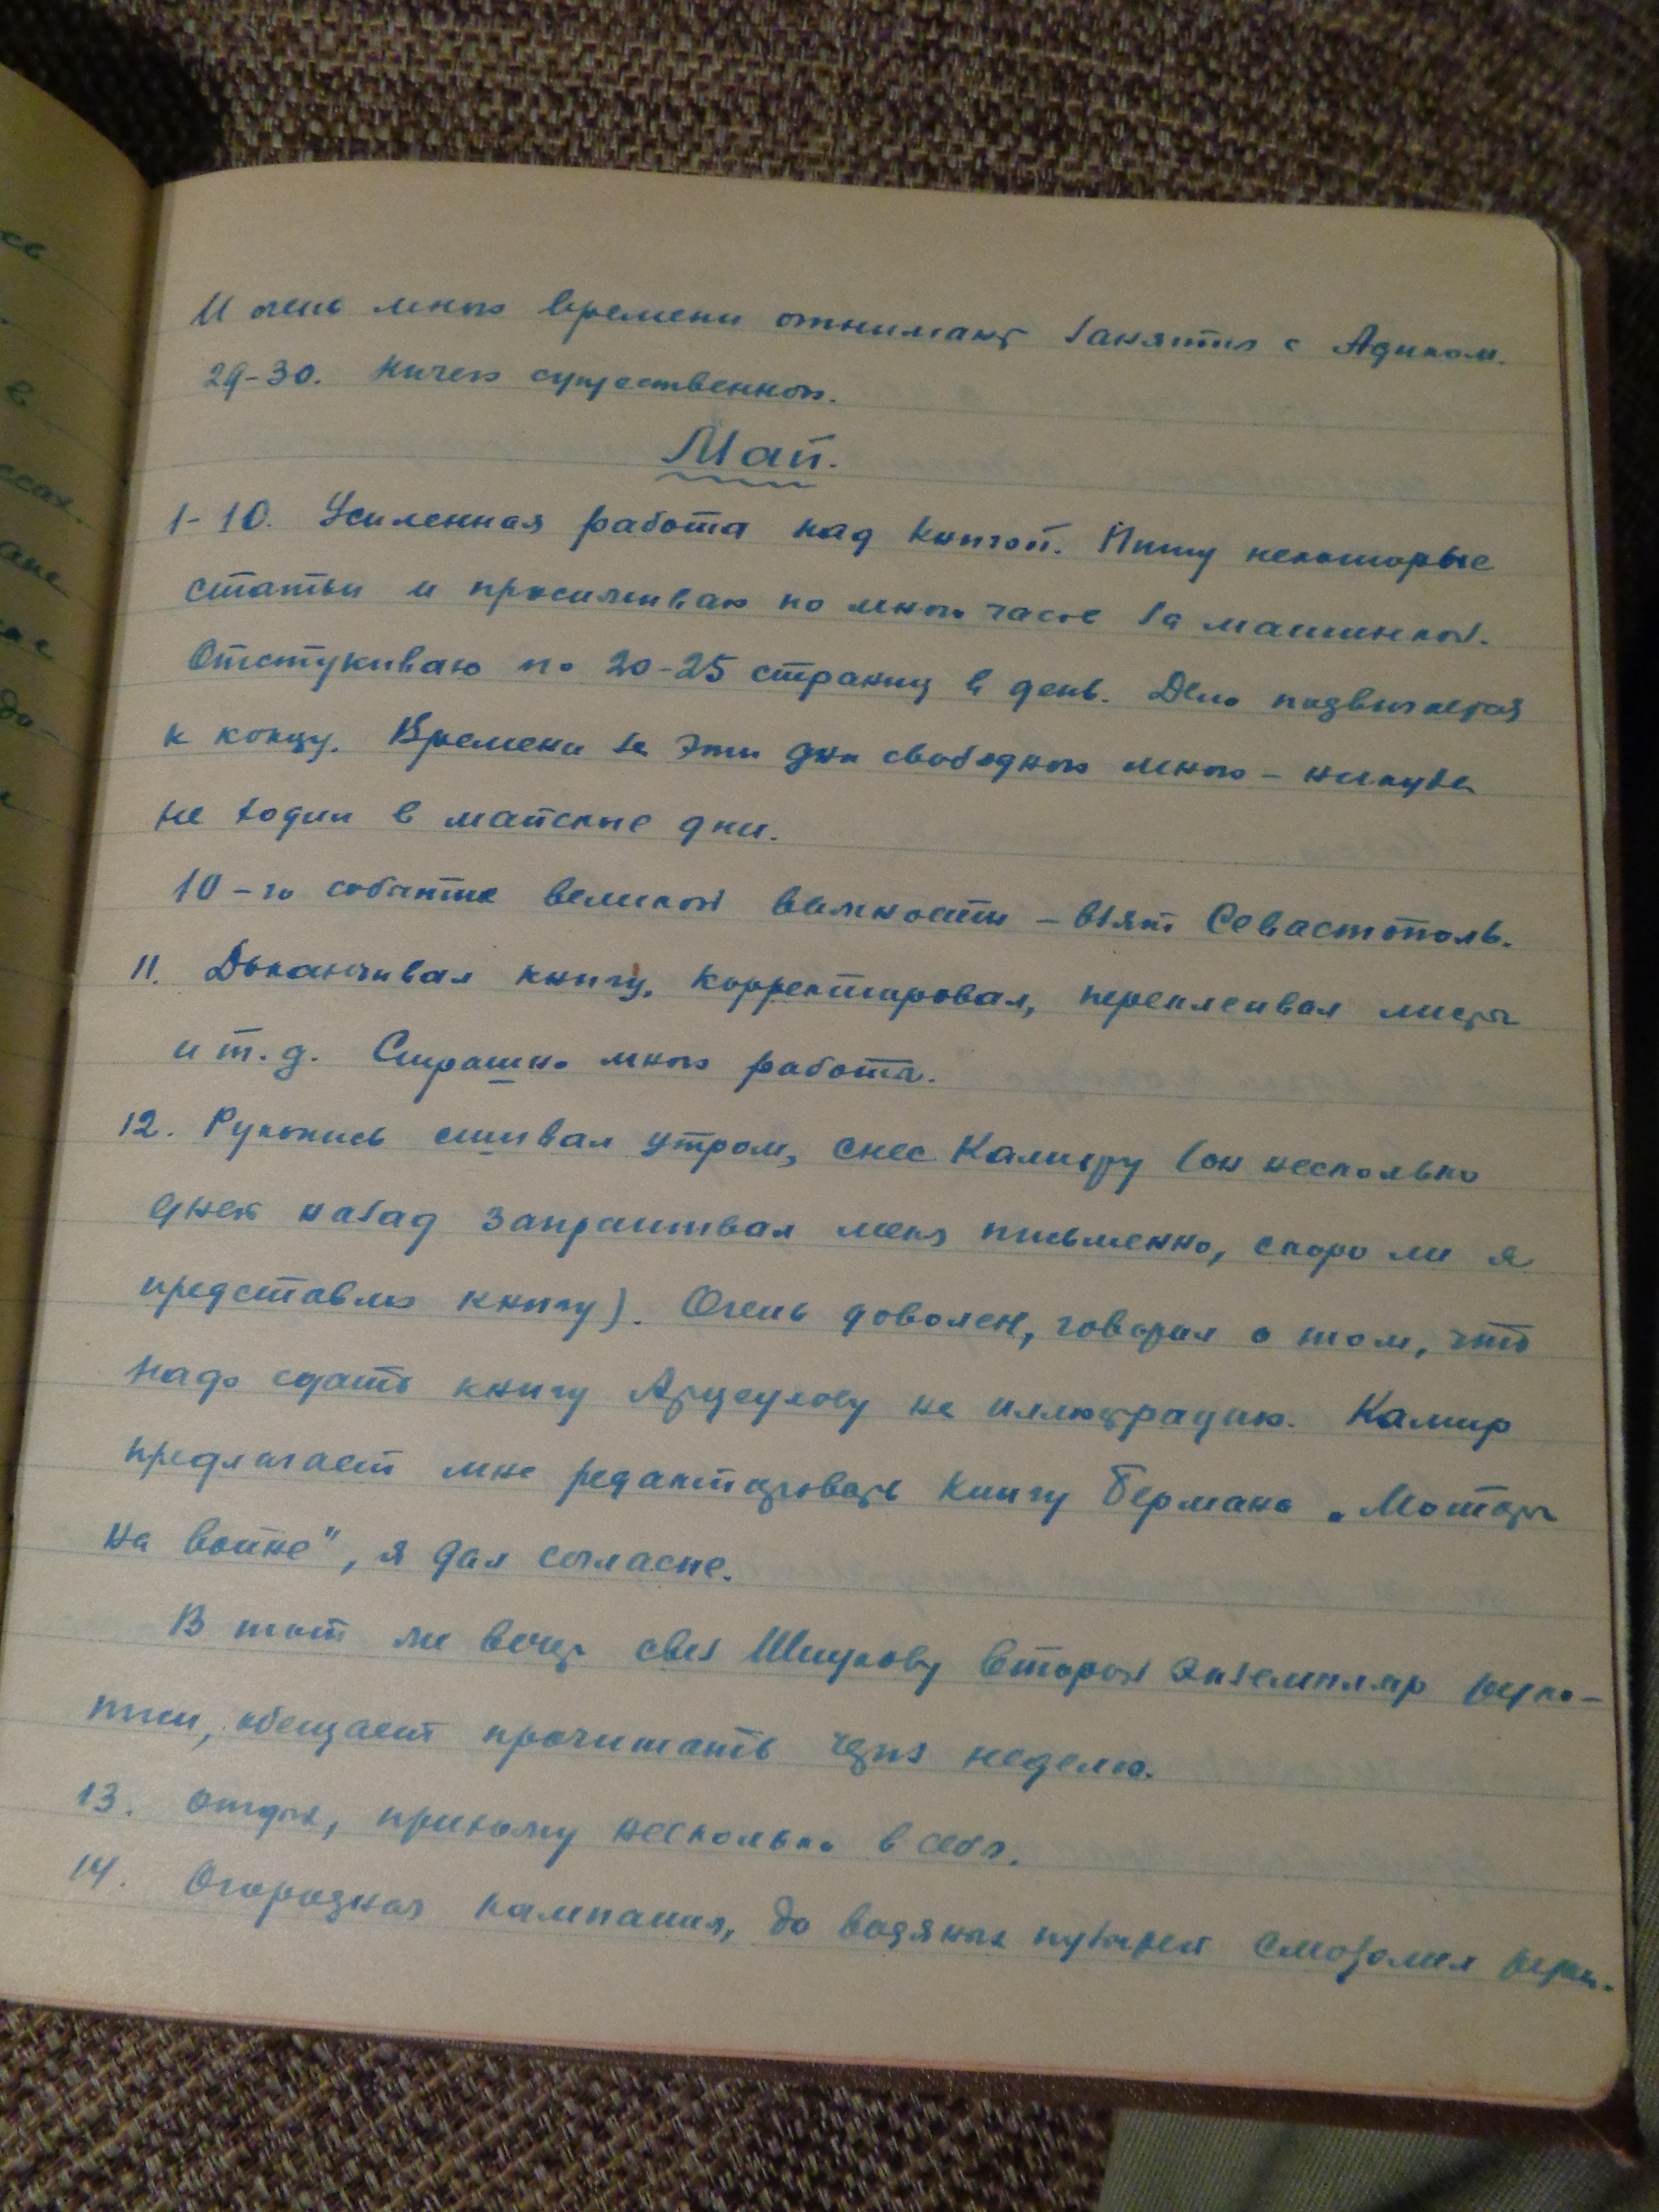 И очень много времени отнимают занятия с Адиком.
29-30. Ничего существенного.
Май.
1-10. Усиленная работа над книгой. Пишу некоторые
статьи и просиживаю по много часов за машинкой.
Отстукиваю по 20-25 страниц в день. Дело подвигается
к концу. Времени за эти дни свободного много – никуда
не ходил в майские дни.
10-го событие великой важности – взят Севастополь.
11. Доканчивал книгу, корректировал, переклеивал листы
и т.д. Страшно много работы.
12. Рукопись сшивал утром, снес Камиру (он несколько
дней назад запрашивал меня письменно, скоро ли я
представлю книгу). Очень доволен, говорил о том, что
надо сдать книгу Арцеулову на иллюстрацию. Камир
предлагает мне редактировать книгу Бермана „Моторы
на войне", я дал согласие.
В тот же вечер свез Шмукову второй экземпляр руко-
писи, обещает прочитать через неделю.
13. Отдых, прихожу несколько в себя.
14. Огородная кампания, до водяных пузырей смозолил руки.